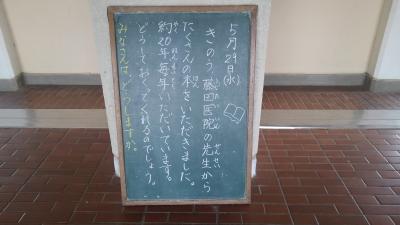 5月29日(水)
きのう 藤田医院の先生から
たくさんの本をいただきました。
約20年毎年いただいています。
どうしておくってくれるのでしょう。
みなさんは、どうしますか。